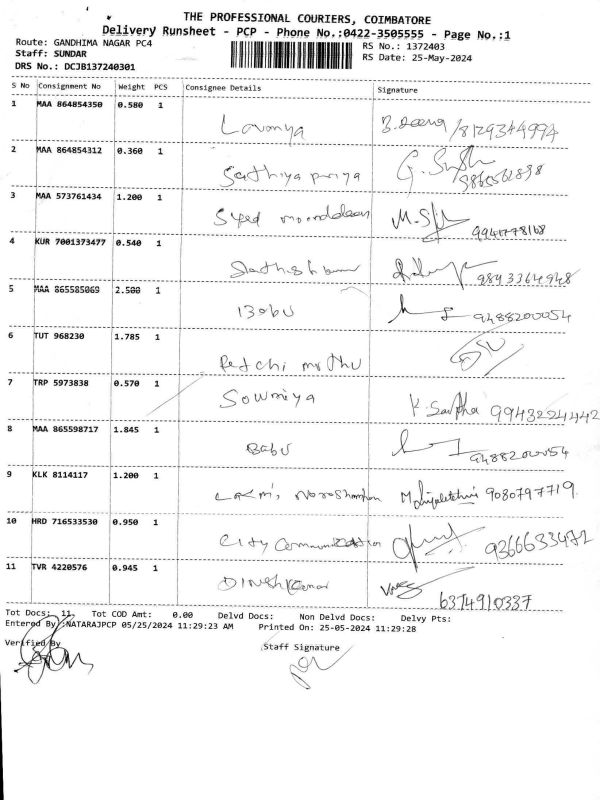 THE PROFESSIONAL COURIERS, COIMBATORE
Delivery Runsheet - PCP - Phone No.:0422-3505555 - Page No.:1
Route: GANDHIMA NAGAR PC4
RS No.: 1372403
Staff: SUNDAR
RS Date: 25-May-2024
DRS No.: DCJB137240301
S No Consignment No Weight PCS Consignee Details Signature
1 MAA 864854350 0.580 1
Lavanya 8129344994
2 MAA 864854312 0.360 1
Sathiya priya
3 MAA 573761434 1.200 1
Syed M.S 9941778168
4 KUR 7001373477 0.540 1
Sathish kumar 9893364948
5 MAA 865585069 2.500 1
Babu 9488200054
6 TUT 968230 1.785 1
Petchi muthu
7 TRP 5973838 0.570 1
Sowmiya K. 9943224442
8 MAA 865598717 1.845 1
Babu 9488200054
9 KLK 8114117 1.200 1
9080797719
10 HRD 716533530 0.950 1
City Communication 9366633472
11 TVR 4220576 0.945 1
Dinesh Kumar 6374910337
Tot Docs: 11 Tot COD Amt: 0.00 Delvd Docs: Non Delvd Docs: Delvy Pts:
Entered By :NATARAJPCP 05/25/2024 11:29:23 AM Printed On: 25-05-2024 11:29:28
Verified By Staff Signature